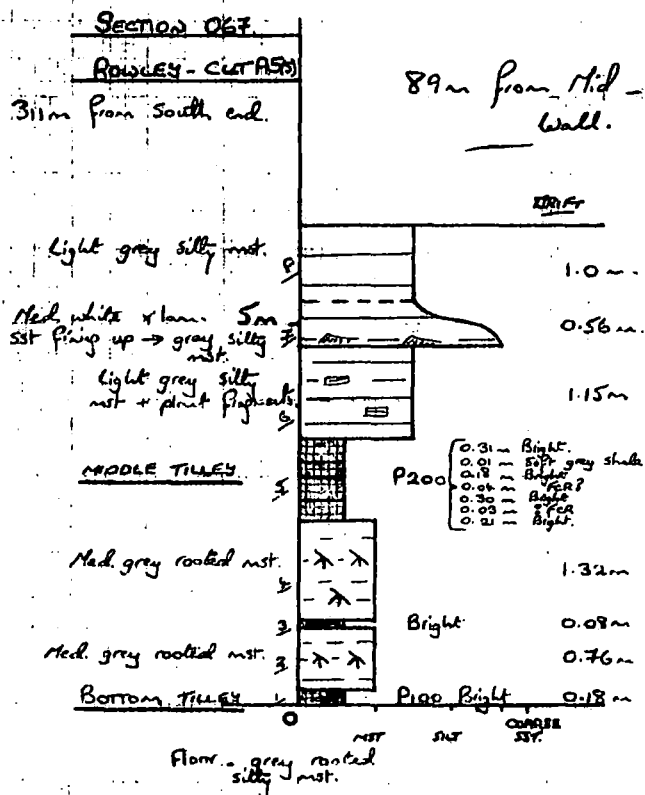 SECTION 067.
ROWLEY - CUT A5(S)
311m from South end.
89m from Mid-
Wall.
DRIFT
Light grey silty mst.
8
1.0m.
Med. white x lam.
5m
sst fining up → grey silty
mst.
7
0.56m.
Light grey silty
mst + plant fragments.
6
1.15m
MIDDLE TILLEY.
5
P200
0.31m Bright.
0.01m Soft grey shale
0.18m Bright
0.04m FCR?
0.30m Bright
0.03m ?FCR
0.21m Bright.
Med. grey rooted mst.
4
1.32m
3
Bright
0.08m
Med. grey rooted mst.
3
0.76m
BOTTOM TILLEY
1
P100 Bright
0.18m
0
MST
SILT
COARSE
SST.
Floor - grey rooted
silty mst.